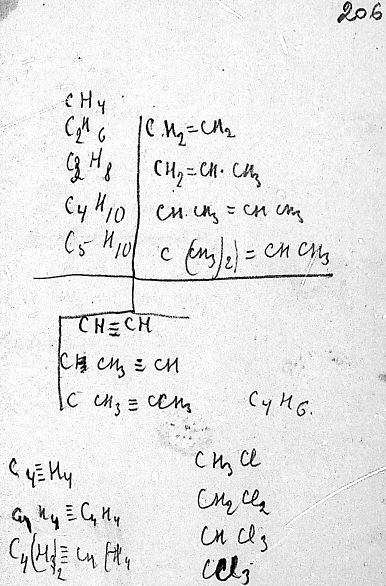 206
CH4
C2H6
C3H8
C4H10
C5H10
CH2=CH2
CH2=CH·CH3
CH·CH3=CH CH3
C (CH3)2)=CH CH3
CH≡CH
C CH3≡CH
C CH3≡CCH3
C4H6.
C4≡H4
CH3Cl
CH2Cl2
CHCl3
CCl3